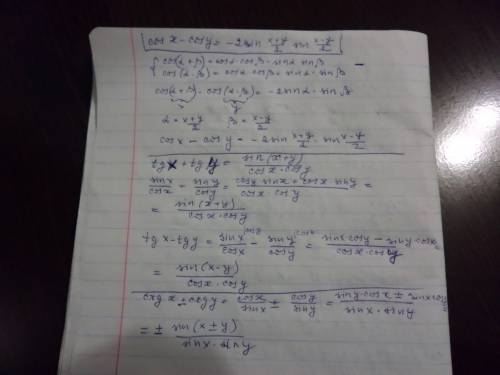 cos x - cos y = -2 sin (x+y)/2 sin (x-y)/2
{ cos(α+β) = cosα cosβ - sinα sinβ
cos(α-β) = cosα cosβ + sinα · sinβ
cos(α+β) - cos(α-β) = -2 sinα · sinβ
y
α = (x+y)/2 β = (x-y)/2
cos x - cos y = -2 sin (x+y)/2 · sin (x-y)/2
tg x + tg y = sin(x+y)/(cos x · cos y)
sin x/cos x + sin y/cos y = (cos y · sin x + cos x · sin y)/(cos x · cos y) =
= sin(x+y)/(cos x · cos y)
tg x - tg y = sin x/cos x - sin y/cos y = (sin x · cos y - sin y · cos x)/(cos x · cos y) =
= sin(x-y)/(cos x · cos y)
ctg x ± ctg y = cos x/sin x ± cos y/sin y = (sin y · cos x ± sin x cos y)/(sin x · sin y) =
= ± sin(x±y)/(sin x · sin y)